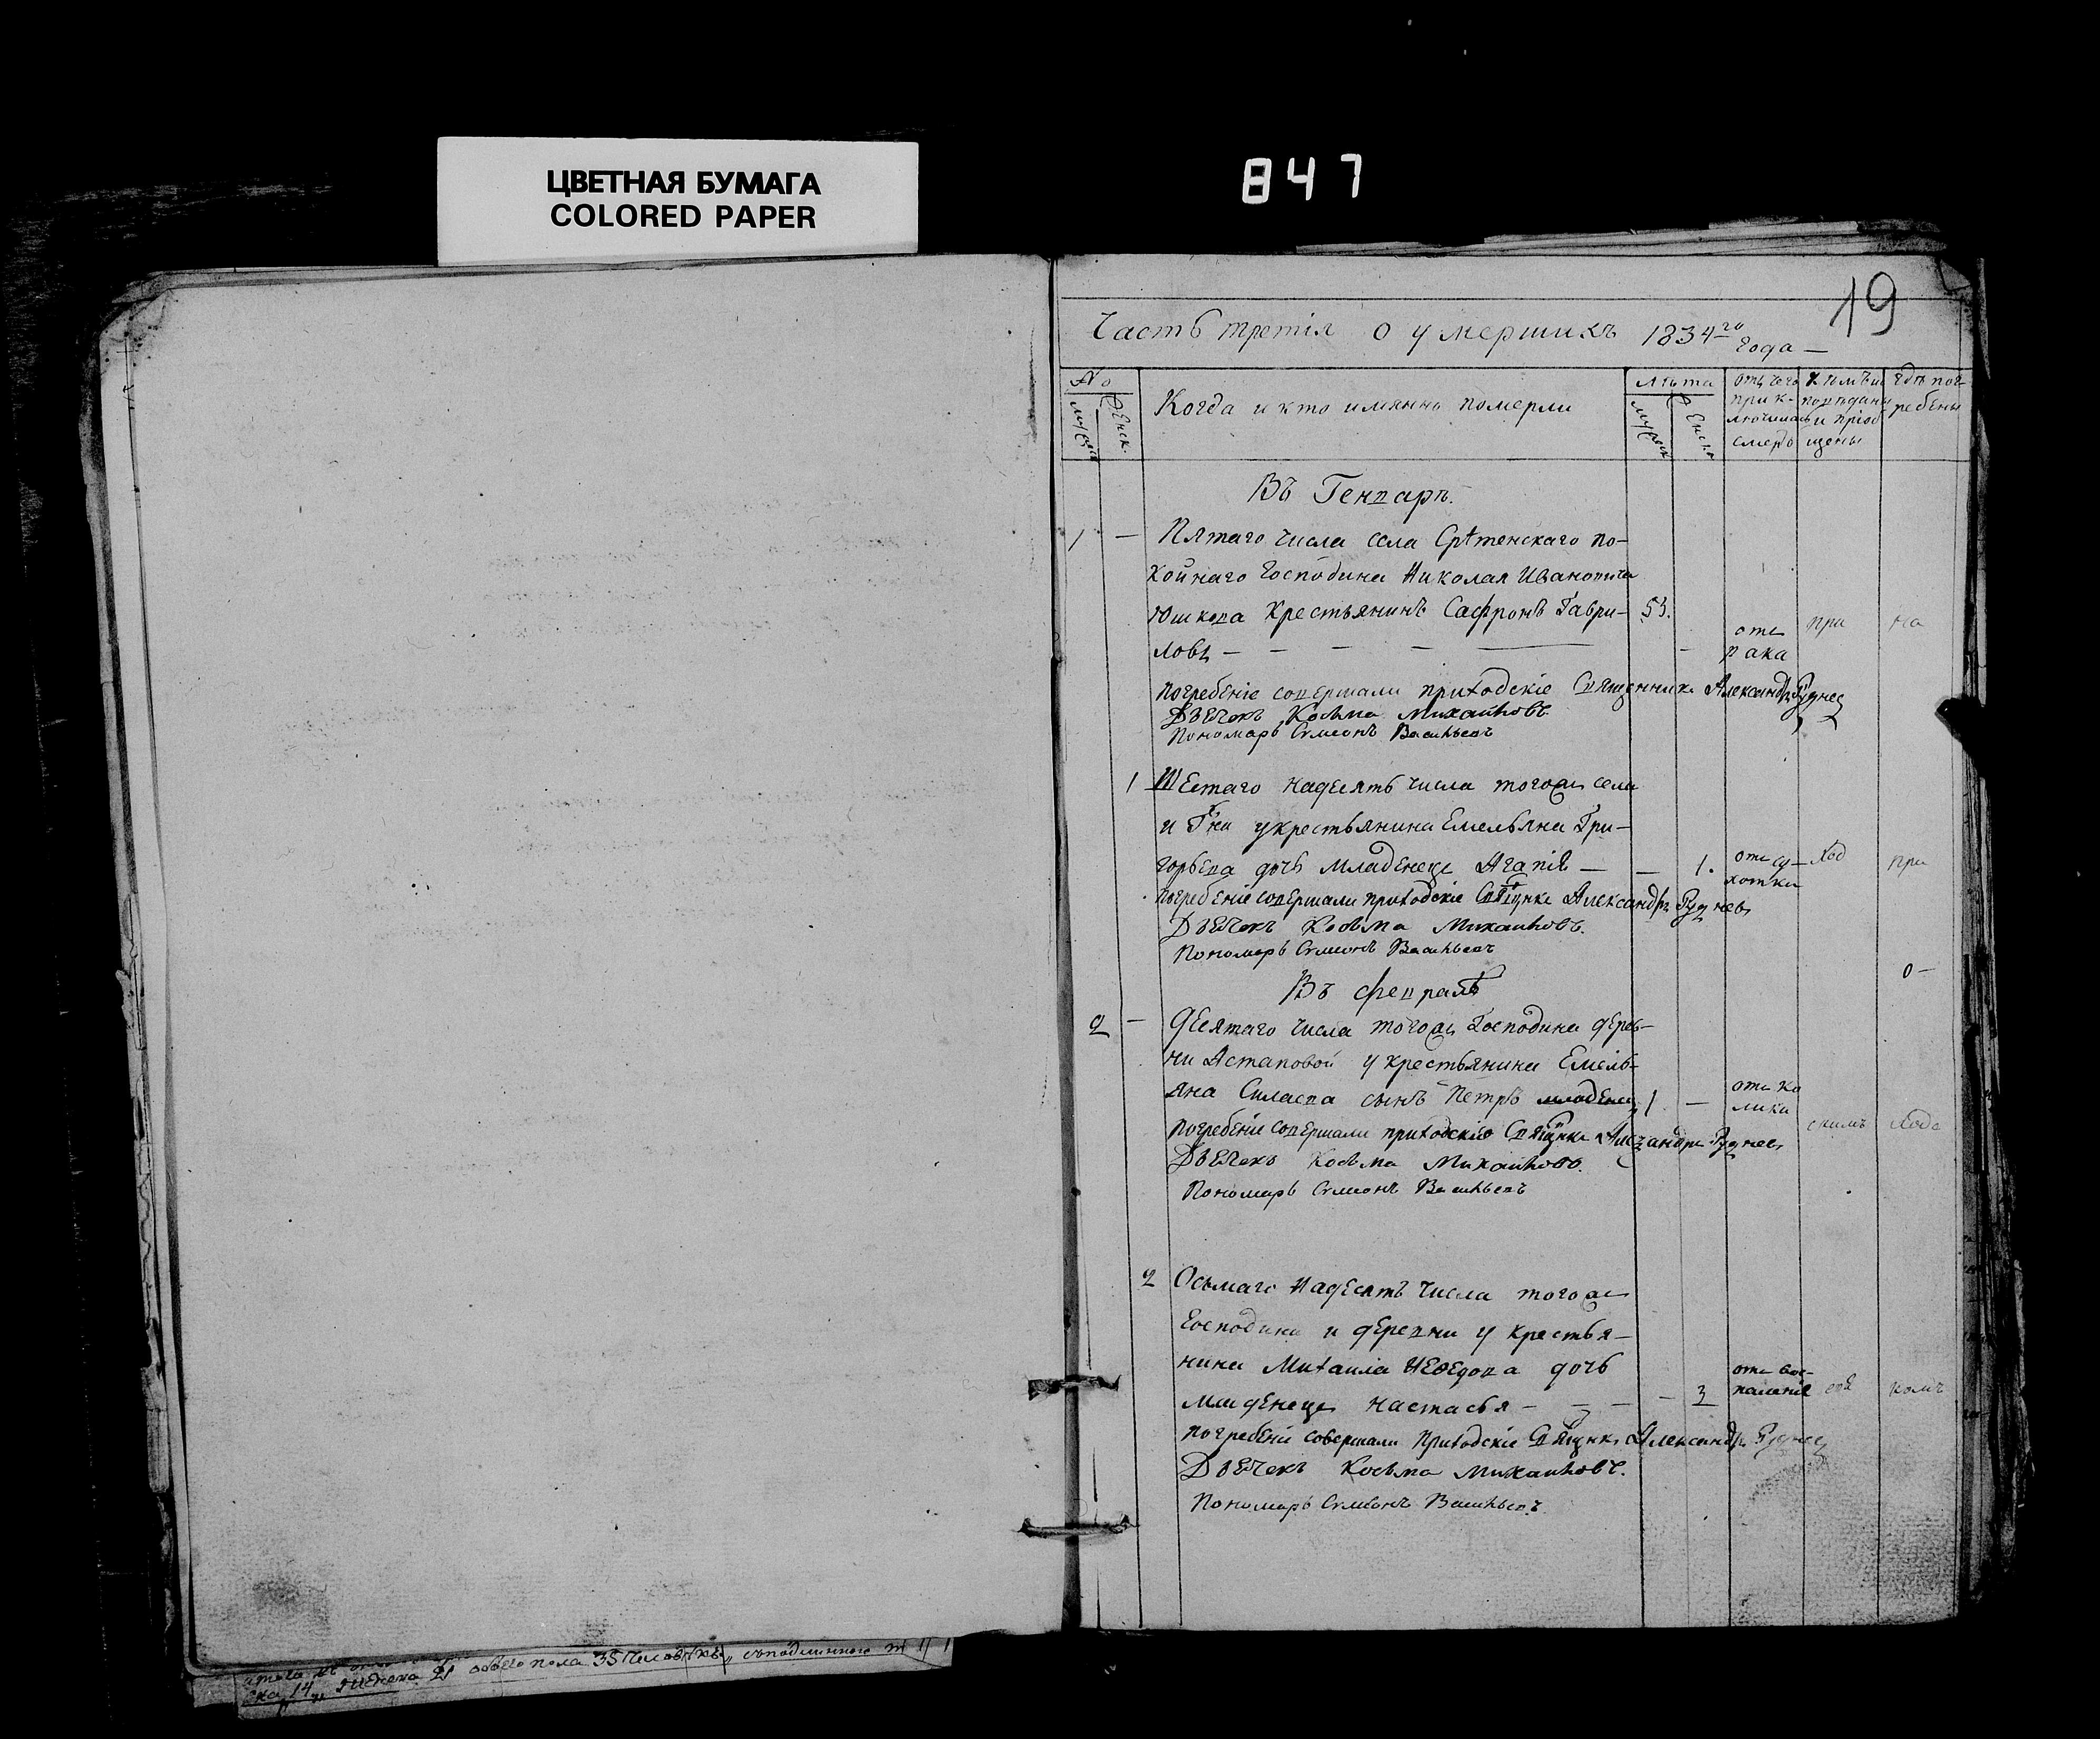 ЦВЕТНАЯ БУМАГА
COLORED PAPER
847
19
Часть третія о умершихъ 1834го года —
No
мужск
Женск.
Когда и кто имянно померли
лѣта
мужск
Женск
отъ чего приключилась смерть
кѣмъ исповѣданы и пріобщены
гдѣ погребены
Въ Генварѣ.
1 — Пятаго числа села Срѣтенскаго по-
койнаго Господина Николая Ивановича
Юшкова Крестьянинъ Сафронъ Гаври- 53.
ловъ — — — — — отъ рака при на
погребеніе совершали приходскіе Священникъ Александръ Руднев
Дьячекъ Косьма Михайловъ.
Пономарь Сѵмеонъ Васильевъ
1 Шестаго надесять числа тогожъ села
и Гна у крестьянина Емельяна Гри-
горьева дочь младенецъ Агапія — — 1. отъ сухотки ход при
погребеніе совершали приходскіе Свящнкъ Александръ Руднев
Дьячекъ Косьма Михайловъ.
Пономарь Сѵмеонъ Васильевъ
о-
Въ февралѣ
2 — Девятаго числа тогожъ Господина дерев-
ни Астаповой у крестьянина Емель-
яна Силаева сынъ Петръ младенец 1 — отъ колики
погребеніе совершали приходскіе Свящнкъ Александръ Руднев скимъ хода
Дьячекъ Косьма Михайловъ.
Пономарь Сѵмеонъ Васильевъ
2 Осьмаго Надесять числа тогожъ
Господина и деревни у крестья-
нина Михаила Нефедова дочь
младенецъ Настасья — — — — 3 отъ воспаленія комъ
погребеніе совершали Приходскіе Свящнкъ Александръ Руднев
Дьячекъ Косьма Михайловъ.
Пономарь Сѵмеонъ Васильевъ.
ска 14, женска 21 обоего пола 35 человѣкъ, съ подлиннымъ